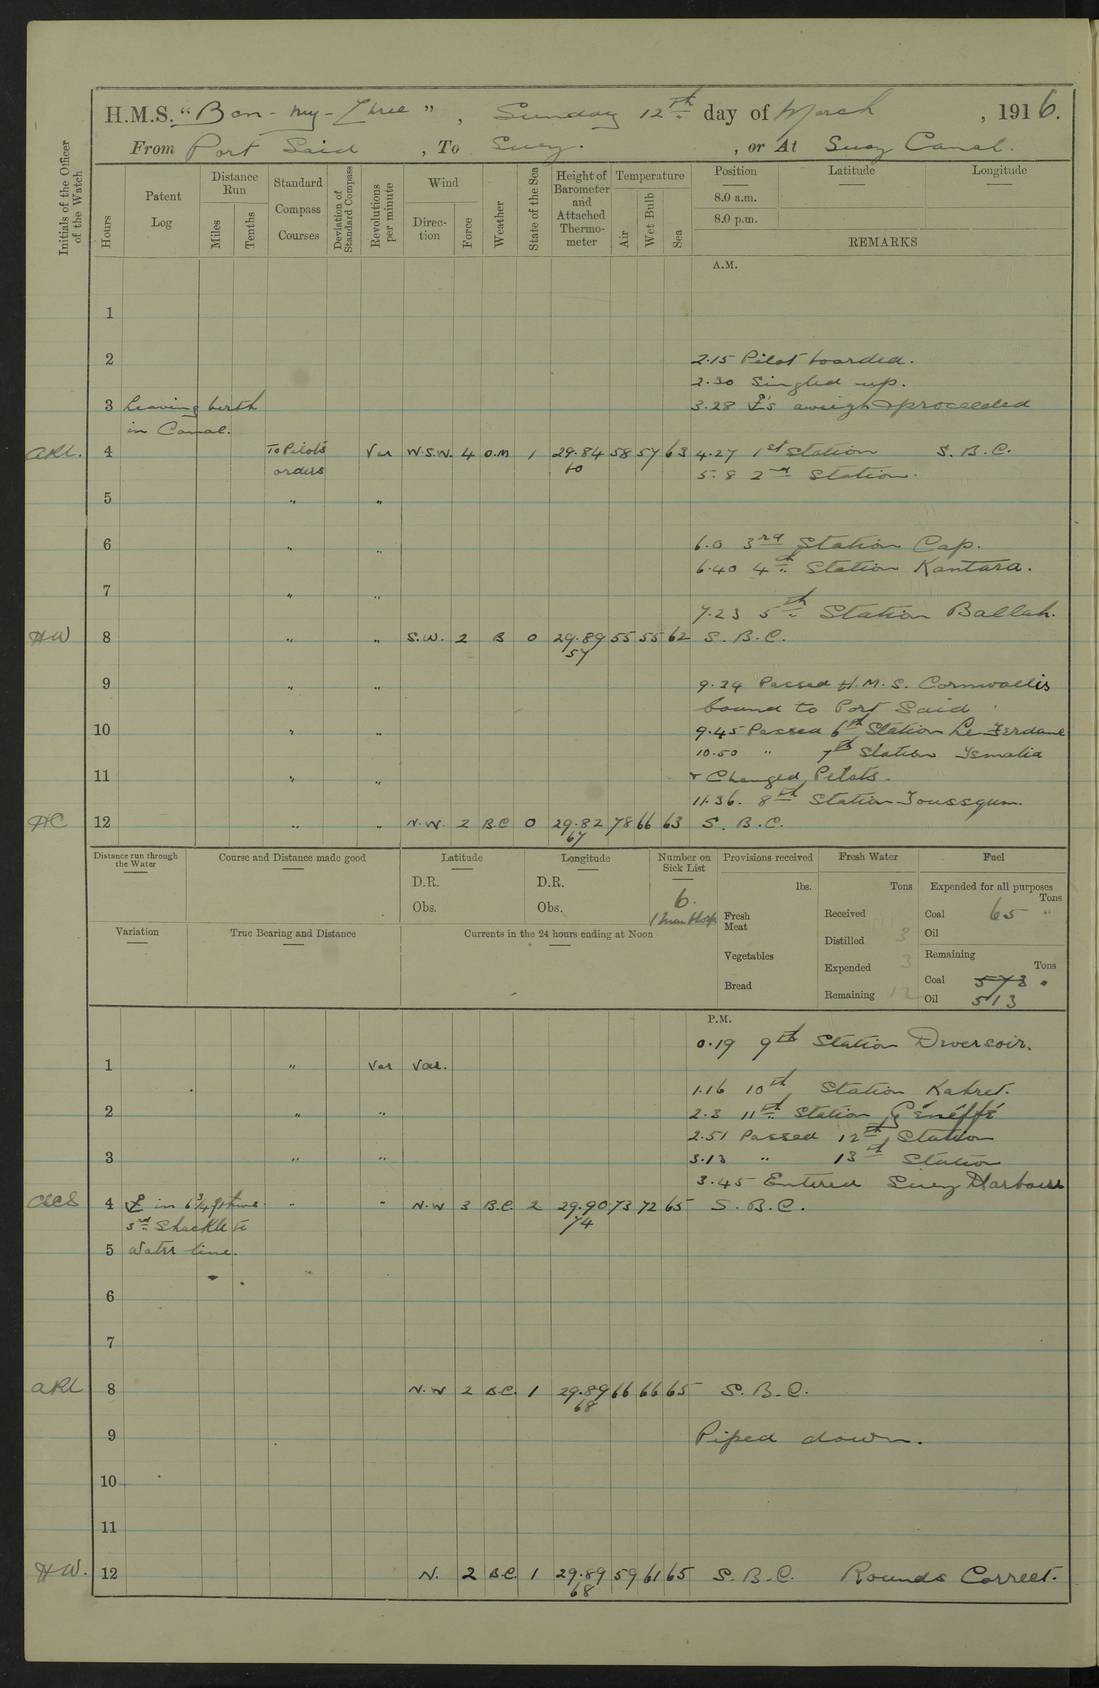 H.M.S. "Ben-my-Chree", Sunday 12th day of March, 1916.
From Port Said, To Suez., or At Suez Canal.
Initials of the Officer of the Watch
Hours
Patent Log
Distance Run
Miles
Tenths
Standard Compass Courses
Deviation of Standard Compass
Revolutions per minute
Wind
Direc-tion
Force
Weather
State of the Sea
Height of Barometer and Attached Thermo-meter
Temperature
Air
Wet Bulb
Sea
Position Latitude Longitude
8.0 a.m.
8.0 p.m.
REMARKS
A.M.
1
2 2.15 Pilot boarded.
2.30 Singled up.
3 Leaving berth 3.28 aweigh & proceeded
in Canal.
4 To Pilots Var W.S.W. 4 O.M 1 29.84 58 57 63 4.27 1st Station S.B.C.
orders 60 5.8 2nd Station.
5 " "
6 " " 6.0 3rd Station Cap.
6.40 4th Station Kantara.
7 " "
7.23 5th Station Ballah.
HW 8 " " S.W. 2 B 0 29.89 55 55 62 S.B.C.
57
9 " " 9.34 Passed H.M.S. Cornwallis
bound to Port Said
10 " " 9.45 Passed 6th Station Le Ferdane
10.50 " 7th Station Ismalia
11 " " & Changed Pilots.
11.36. 8th Station Toussoum.
HC 12 " " N.W. 2 B.C 0 29.82 78 66 63 S.B.C.
67
Distance run through the Water
Course and Distance made good
Latitude
D.R.
Obs.
Longitude
D.R.
Obs.
Number on Sick List
6.
Provisions received
lbs.
Fresh Meat
Vegetables
Bread
Fresh Water
Tons
Received
Distilled 3
Expended 3
Remaining 12
Fuel
Expended for all purposes
Tons
Coal 65 "
Oil
Remaining
Tons
Coal 573
Oil 513
Variation
True Bearing and Distance
Currents in the 24 hours ending at Noon
P.M.
0.19 9th Station Deversoir.
1 " Var Var.
1.16 10th Station Kabret.
2 " " 2.3 11th Station Généffé
2.51 Passed 12th Station
3 " " 3.13 " 13th Station
3.45 Entered Suez Harbour
4 in 6¾ fthms " " N.W 3 B.C. 2 29.90 73 72 65 S.B.C.
Shackle to 74
5 Water line.
6
7
8 N.W 2 B.C. 1 29.89 66 66 65 S.B.C.
68
9 Piped down.
10
11
H.W. 12 N. 2 B.C. 1 29.89 59 61 65 S.B.C. Rounds Correct.
68